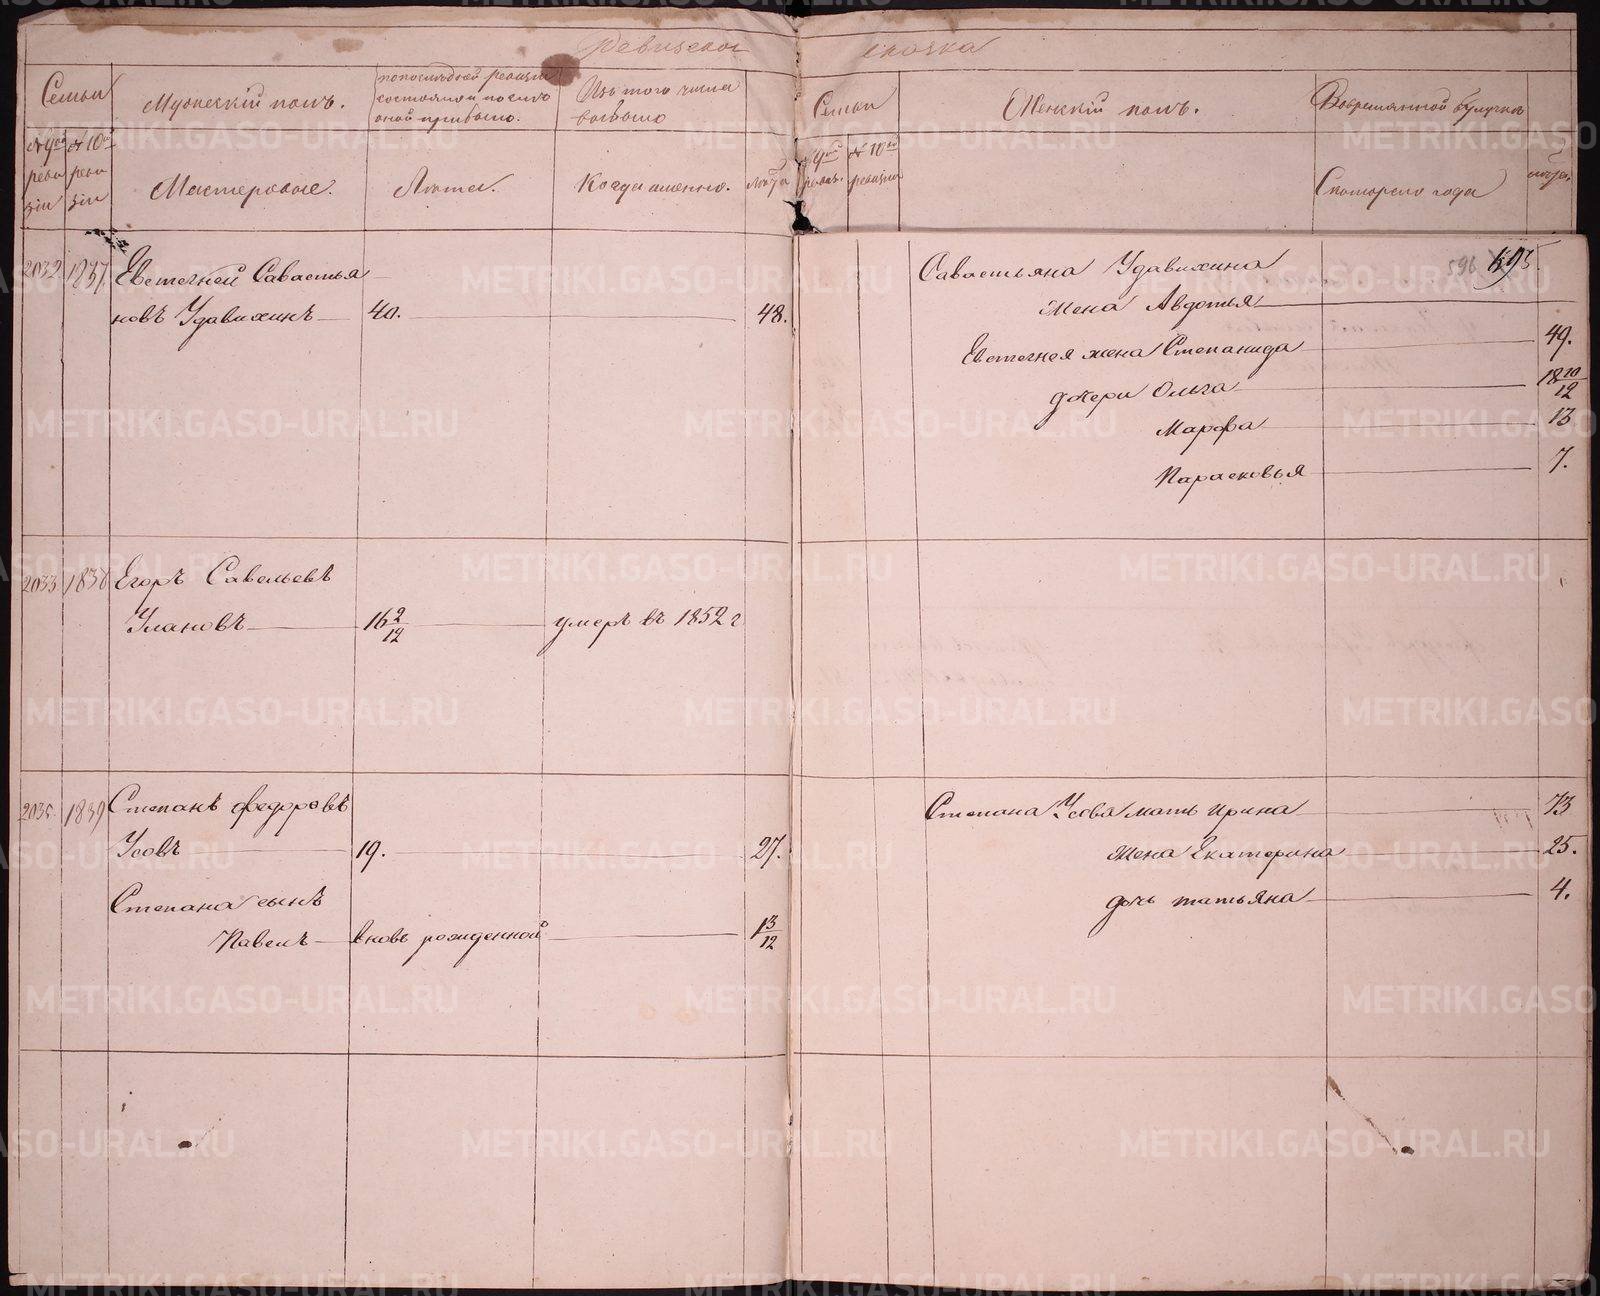 Ревизская сказка
Семьи
Мужескій полъ.
По последней ревизіи состояло и после оной прибыло.
Изъ того числа выбыло
№ 9ой ревизіи
№ 10ой ревизіи
Мастеровые.
Лета.
Когда именно.
лета
Семьи
Женскій полъ.
Во временной отлучке
№ 9ой ревиз.
№ 10ой ревизіи
С котораго года
лета.
596 595.
2032 1837. Евстегней Савастья
новъ Удавихинъ 40. 48.
Савастьяна Удавихина
жена Авдотья
Евстегнея жена Степанида 49.
дочери Ольга 18 10/12
Марфа 13
Парасковья 7.
2033 1838 Егоръ Савельевъ
Улановъ 16 2/12 умеръ въ 1852 г
2035. 1839 Степанъ Федоровъ
Усовъ 19. 27.
Степана сынъ
Павелъ вновь рожденной 1 3/12
Степана Усова мать Ирина 73
жена Екатерина 25.
дочь татьяна 4.
METRIKI.GASO-URAL.RU